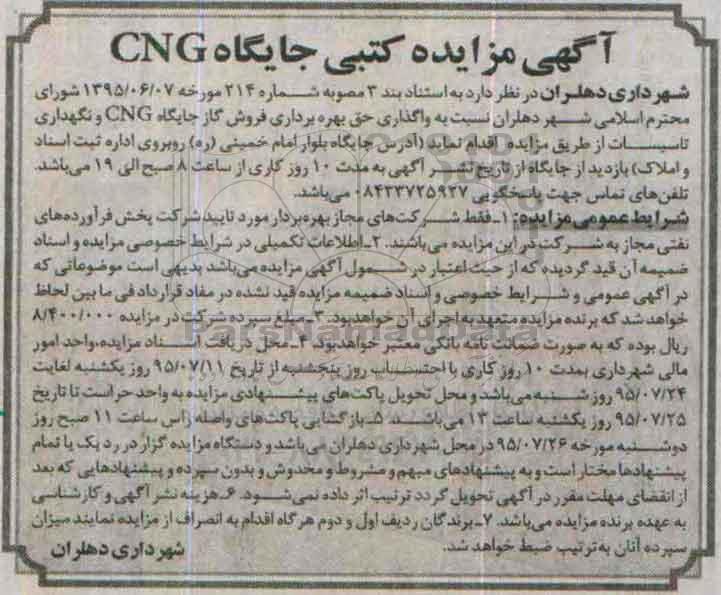 آگهی مزایده کتبی جایگاه CNG
شهرداری دهلران در نظر دارد به استناد بند ۳ مصوبه شماره ۲۱۴ مورخه ۱۳۹۵/۰۶/۰۷ شورای
محترم اسلامی شهر دهلران نسبت به واگذاری حق بهره برداری فروش گاز جایگاه CNG و نگهداری
تاسیسات از طریق مزایده اقدام نماید (آدرس جایگاه بلوار امام خمینی (ره) روبروی اداره ثبت اسناد
و املاک) بازدید از جایگاه از تاریخ نشر آگهی به مدت ۱۰ روز کاری از ساعت ۸ صبح الی ۱۹ می‌باشد.
تلفن‌های تماس جهت پاسخگویی ۰۸۴۳۳۷۲۵۹۲۷ می‌باشد.
شرایط عمومی مزایده: ۱ـ فقط شرکت‌های مجاز بهره‌بردار مورد تایید شرکت پخش فرآورده‌های
نفتی مجاز به شرکت در این مزایده می‌باشند. ۲ـ اطلاعات تکمیلی در شرایط خصوصی مزایده و اسناد
ضمیمه آن قید گردیده که از حیث اعتبار در شمول آگهی مزایده می‌باشد بدیهی است موضوعاتی که
در آگهی عمومی و شرایط خصوصی و اسناد ضمیمه مزایده قید نشده در مفاد قرارداد فی ما بین لحاظ
خواهد شد که برنده مزایده متعهد به اجرای آن خواهد بود. ۳ـ مبلغ سپرده شرکت در مزایده ۸/۴۰۰/۰۰۰
ریال بوده که به صورت ضمانت نامه بانکی معتبر خواهد بود ۴ـ محل دریافت اسناد مزایده، واحد امور
مالی شهرداری بمدت ۱۰ روز کاری با احتساب روز پنجشنبه از تاریخ ۹۵/۰۷/۱۱ روز یکشنبه لغایت
۹۵/۰۷/۲۴ روز شنبه می‌باشد و محل تحویل پاکت‌های پیشنهادی مزایده به واحد حراست تا تاریخ
۹۵/۰۷/۲۵ روز یکشنبه ساعت ۱۳ می‌باشد. ۵ـ بازگشایی پاکت‌های واصله راس ساعت ۱۱ صبح روز
دوشنبه مورخه ۹۵/۰۷/۲۶ در محل شهرداری دهلران می‌باشد و دستگاه مزایده گزار در رد یک یا تمام
پیشنهادها مختار است و به پیشنهادهای مبهم و مشروط و مخدوش و بدون سپرده و پیشنهادهایی که بعد
از انقضای مهلت مقرر در آگهی تحویل گردد ترتیب اثر داده نمی‌شود. ۶ـ هزینه نشر آگهی و کارشناسی
به عهده برنده مزایده می‌باشد. ۷ـ برندگان ردیف اول و دوم هرگاه اقدام به انصراف از مزایده نمایند میزان
سپرده آنان به ترتیب ضبط خواهد شد.
شهرداری دهلران
ParsNamadData